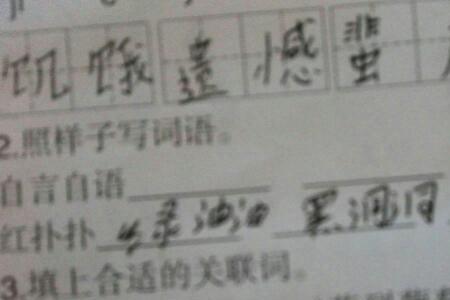 饥饿 遗憾 蜚
2.照样子写词语。
自言自语
红扑扑 绿油油 黑洞洞
3.填上合适的关联词。